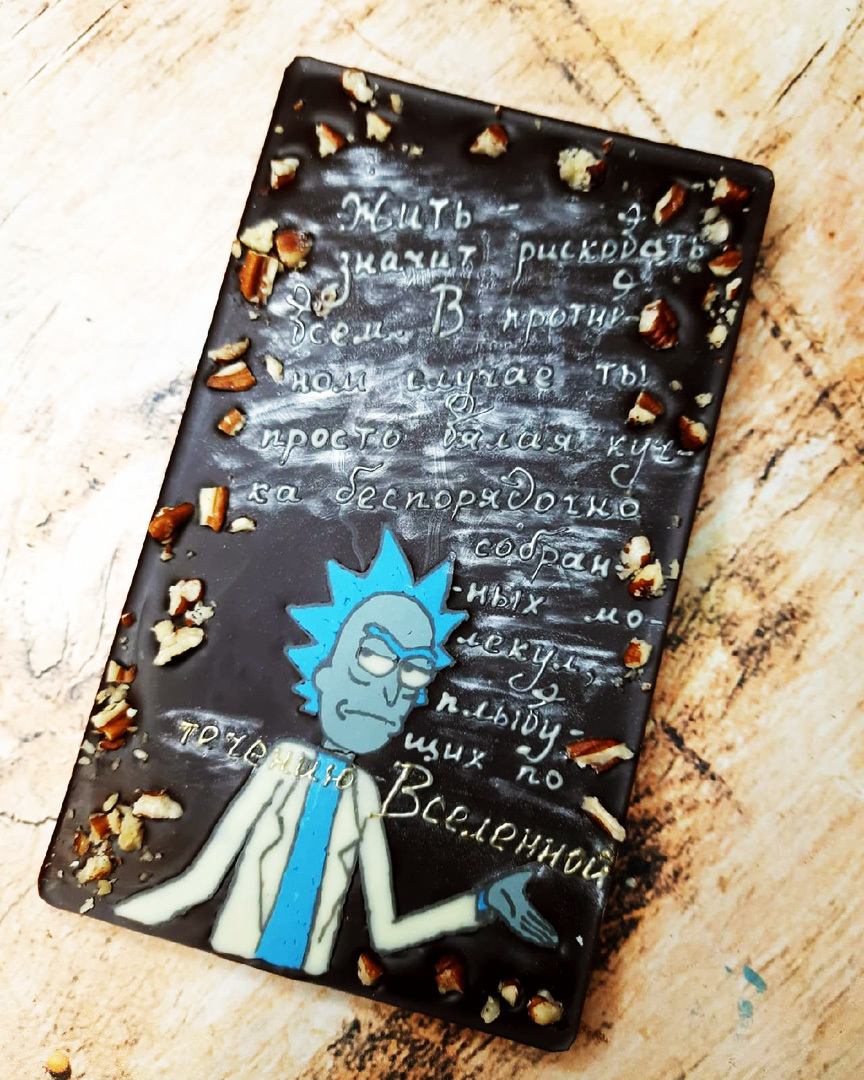 Жить -
значит рисковать
всем. В против-
ном случае ты
просто вялая куч-
ка беспорядочно
собран-
-ных мо-
лекул,
плыву-
щих по
течению
Вселенной